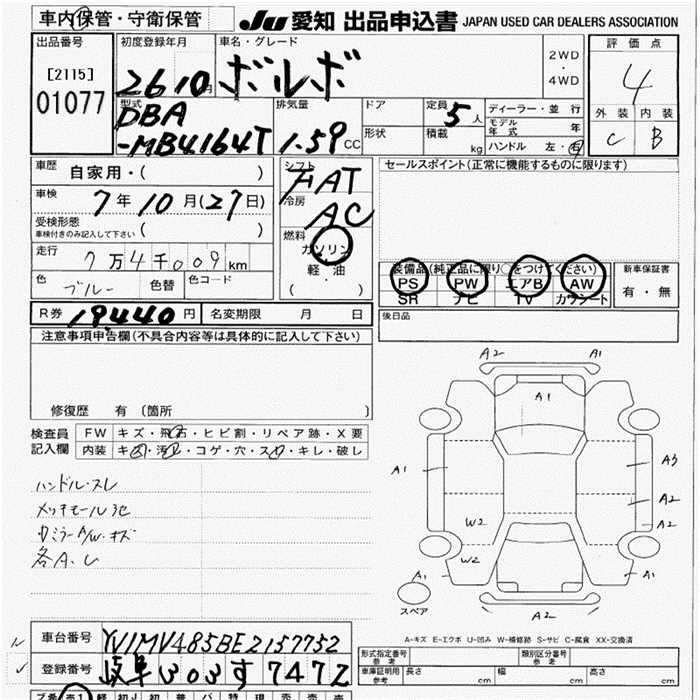 車内保管・守衛保管 JU 愛知 出品申込書 JAPAN USED CAR DEALERS ASSOCIATION
出品番号 初度登録年月 車名・グレード 評価点
[2115] 2610月 ボルボ 2WD・4WD 4
01077
型式 排気量 ドア 定員 5人 ディーラー・並行 外装 内装
DBA 形状 積載 kg モデル年式 年 C B
-MB4164T 1.59CC ハンドル 左・右
車歴 自家用・( ) シフト FAT セールスポイント(正常に機能するものに限ります)
車検 7年10月(27日) 冷房 AC
受検形態 ( )
車検付きのみ記入して下さい
燃料 ガソリン
走行 7万4千009km 軽・油 装備品(純正品に限り○をつけてください) 新車保証書
色 ブルー 色替 色コード ( ・ ) PS PW エアB AW 有・無
SR ナビ TV カワシート
R券 19440円 名変期限 月 日 後日品
注意事項申告欄(不具合内容等は具体的に記入して下さい)
A2 A1
A1
修復歴 有 〔箇所 〕
検査員 FW キズ・飛石・ヒビ割・リペア跡・X要
記入欄 内装 キズ・汚レ・コゲ・穴・スレ・キレ・破レ
A1 A3
ハンドル・スレ
A2
メッキモール
W2 A2
ミラーA/W・キズ
各A.U
W2
A1 A1
スペア
A2
A-キズ E-エクボ U-凹み W-補修跡 S-サビ C-腐食 XX-交換済
車台番号 YV1MV485BE2157752
形式指定番号 参考 類別区分番号 参考
登録番号 岐阜303す7472
車庫証明用 参考 長さ cm 幅 cm 高さ cm